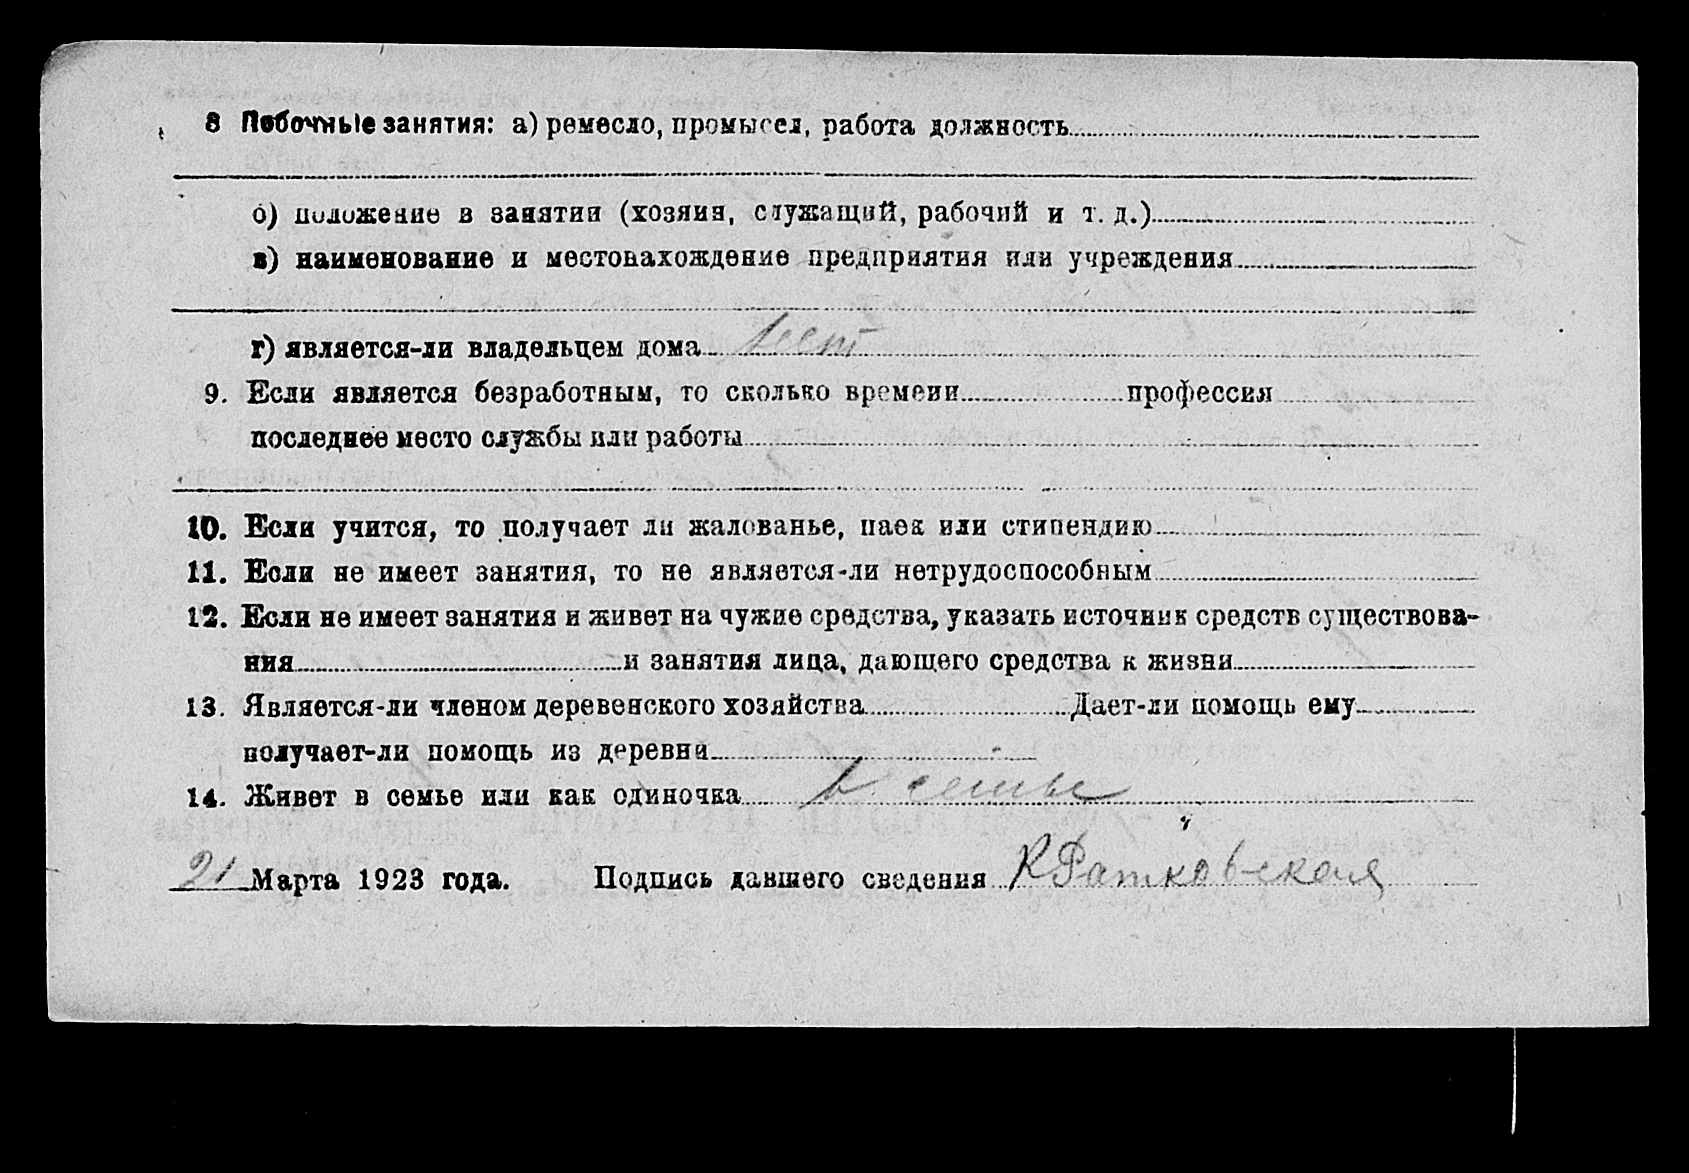 8 Побочные занятия: а) ремесло, промысел, работа должность
б) положение в занятии (хозяин, служащий, рабочий и т. д.)
в) наименование и местонахождение предприятия или учреждения
г) является-ли владельцем дома нет
9. Если является безработным, то сколько времени профессия
последнее место службы или работы
10. Если учится, то получает ли жалованье, паек или стипендию
11. Если не имеет занятия, то не является-ли нетрудоспособным
12. Если не имеет занятия и живет на чужие средства, указать источник средств существова-
ния и занятия лица, дающего средства к жизни
13. Является-ли членом деревенского хозяйства Дает-ли помощь ему
получает-ли помощь из деревни
14. Живет в семье или как одиночка в семье
21 Марта 1923 года. Подпись давшего сведения К Ратковская